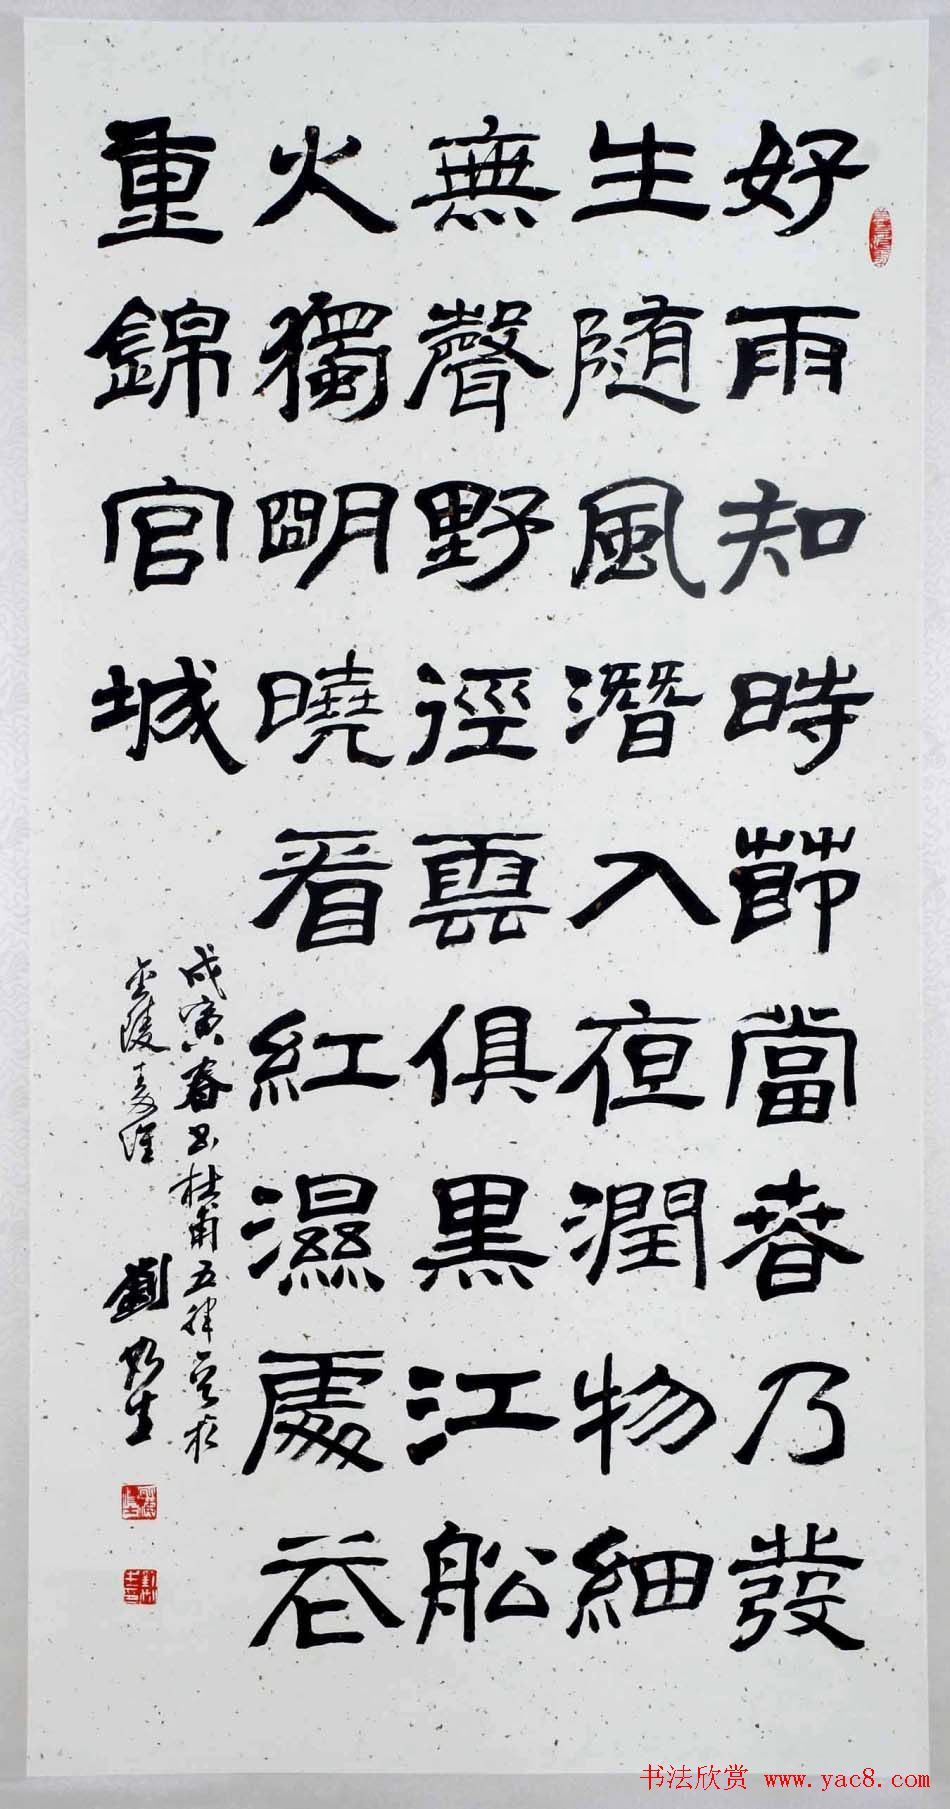 好雨知時節當春乃發
生随風潛入夜潤物細
無聲野徑雲俱黑江船
火獨明曉看紅濕處花
重錦官城
戊寅春书杜甫五律
金陵
劉
生
书法欣赏 www.yac8.com